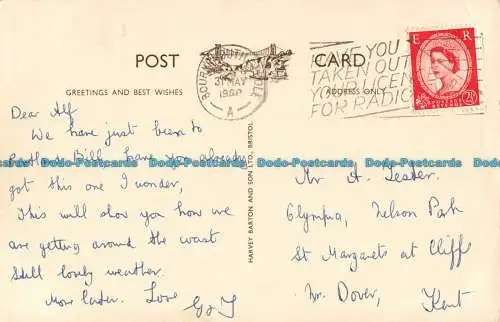 POST CARD
GREETINGS AND BEST WISHES
ADDRESS ONLY
BOURNEMOUTH
31 MAY
1960
A
HAVE YOU
TAKEN OUT
LICEN
FOR RADIO
E R
POSTAGE
2½D
Dear Alf
We have just been to
Portland Bill, have you already
got this one I wonder,
This will show you how we
are getting around the coast
Still lovely weather.
More later. Love
G & J
HARVEY BARTON AND SON LTD., BRISTOL
Mr A. Lester.
Olympia, Nelson Park
St Margarets at Cliffe
Nr. Dover,
Kent
Docards-Postcards Docards-Postcards Docards-Postcards Docards-Postcards